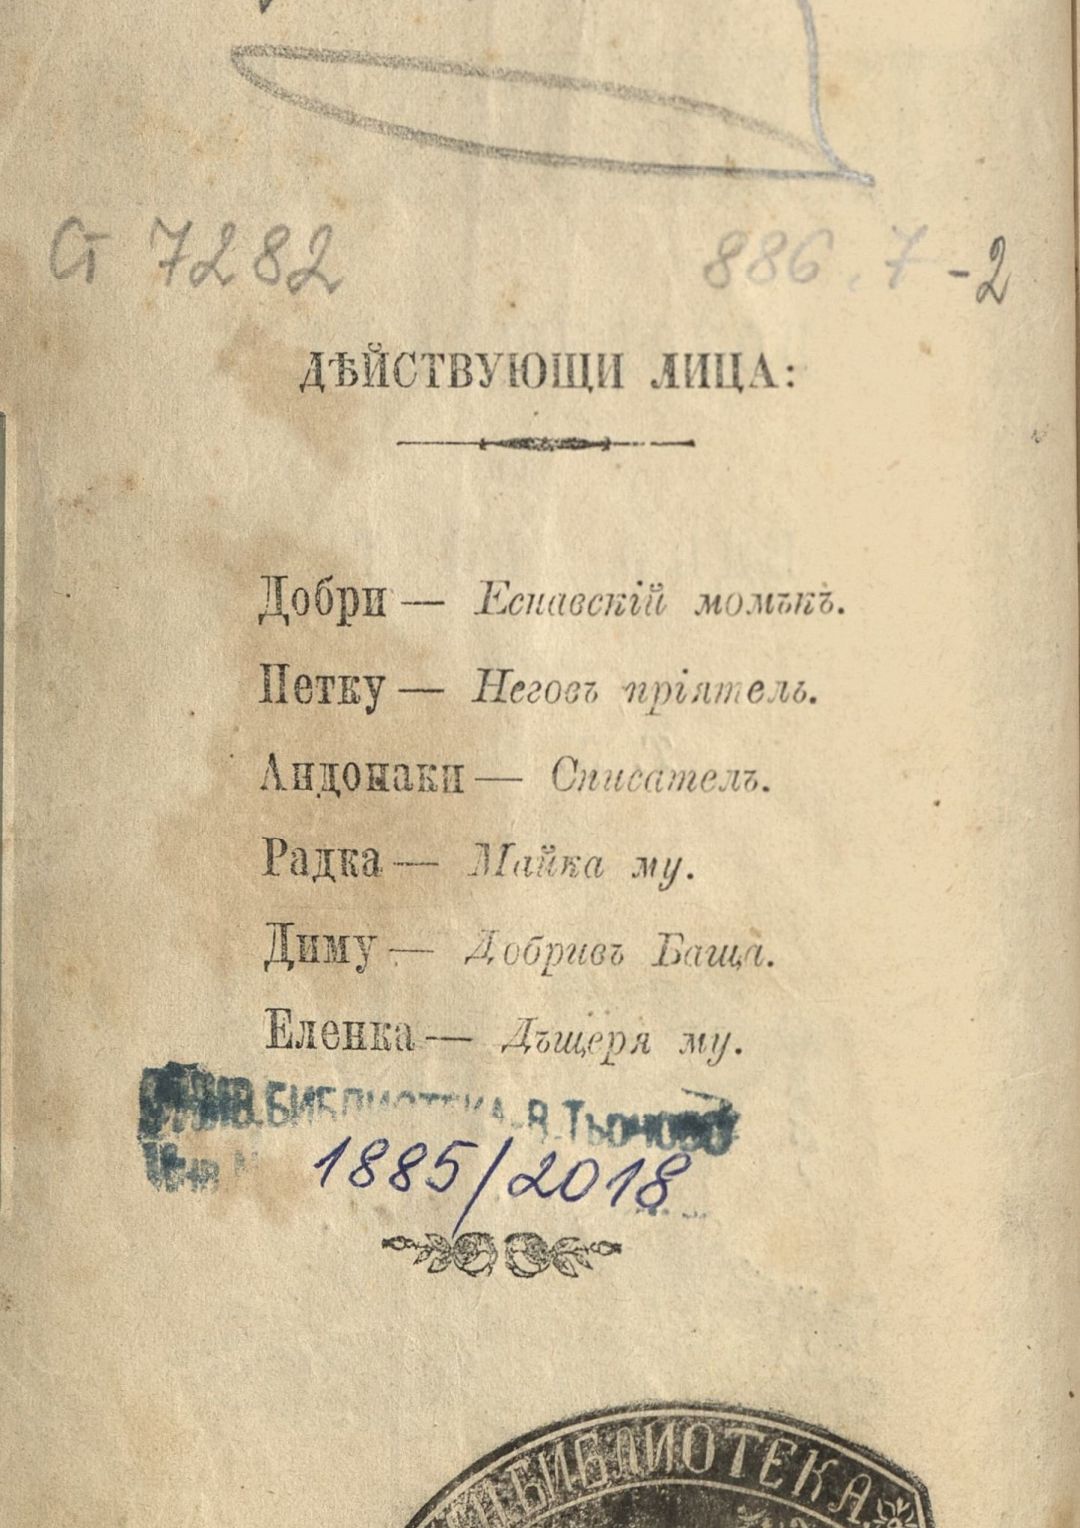 Ст 7282
886.7-2
ДѢЙСТВУЮЩИ ЛИЦА:
Добри — Еснавскій момъкъ.
Петку — Неговъ пріятель.
Андонаки — Списателъ.
Радка — Майка му.
Диму — Добривъ Баща.
Еленка — Дъщеря му.
БИБЛИОТЕКА-В.Търново
1885/2018
БИБЛИОТЕКА